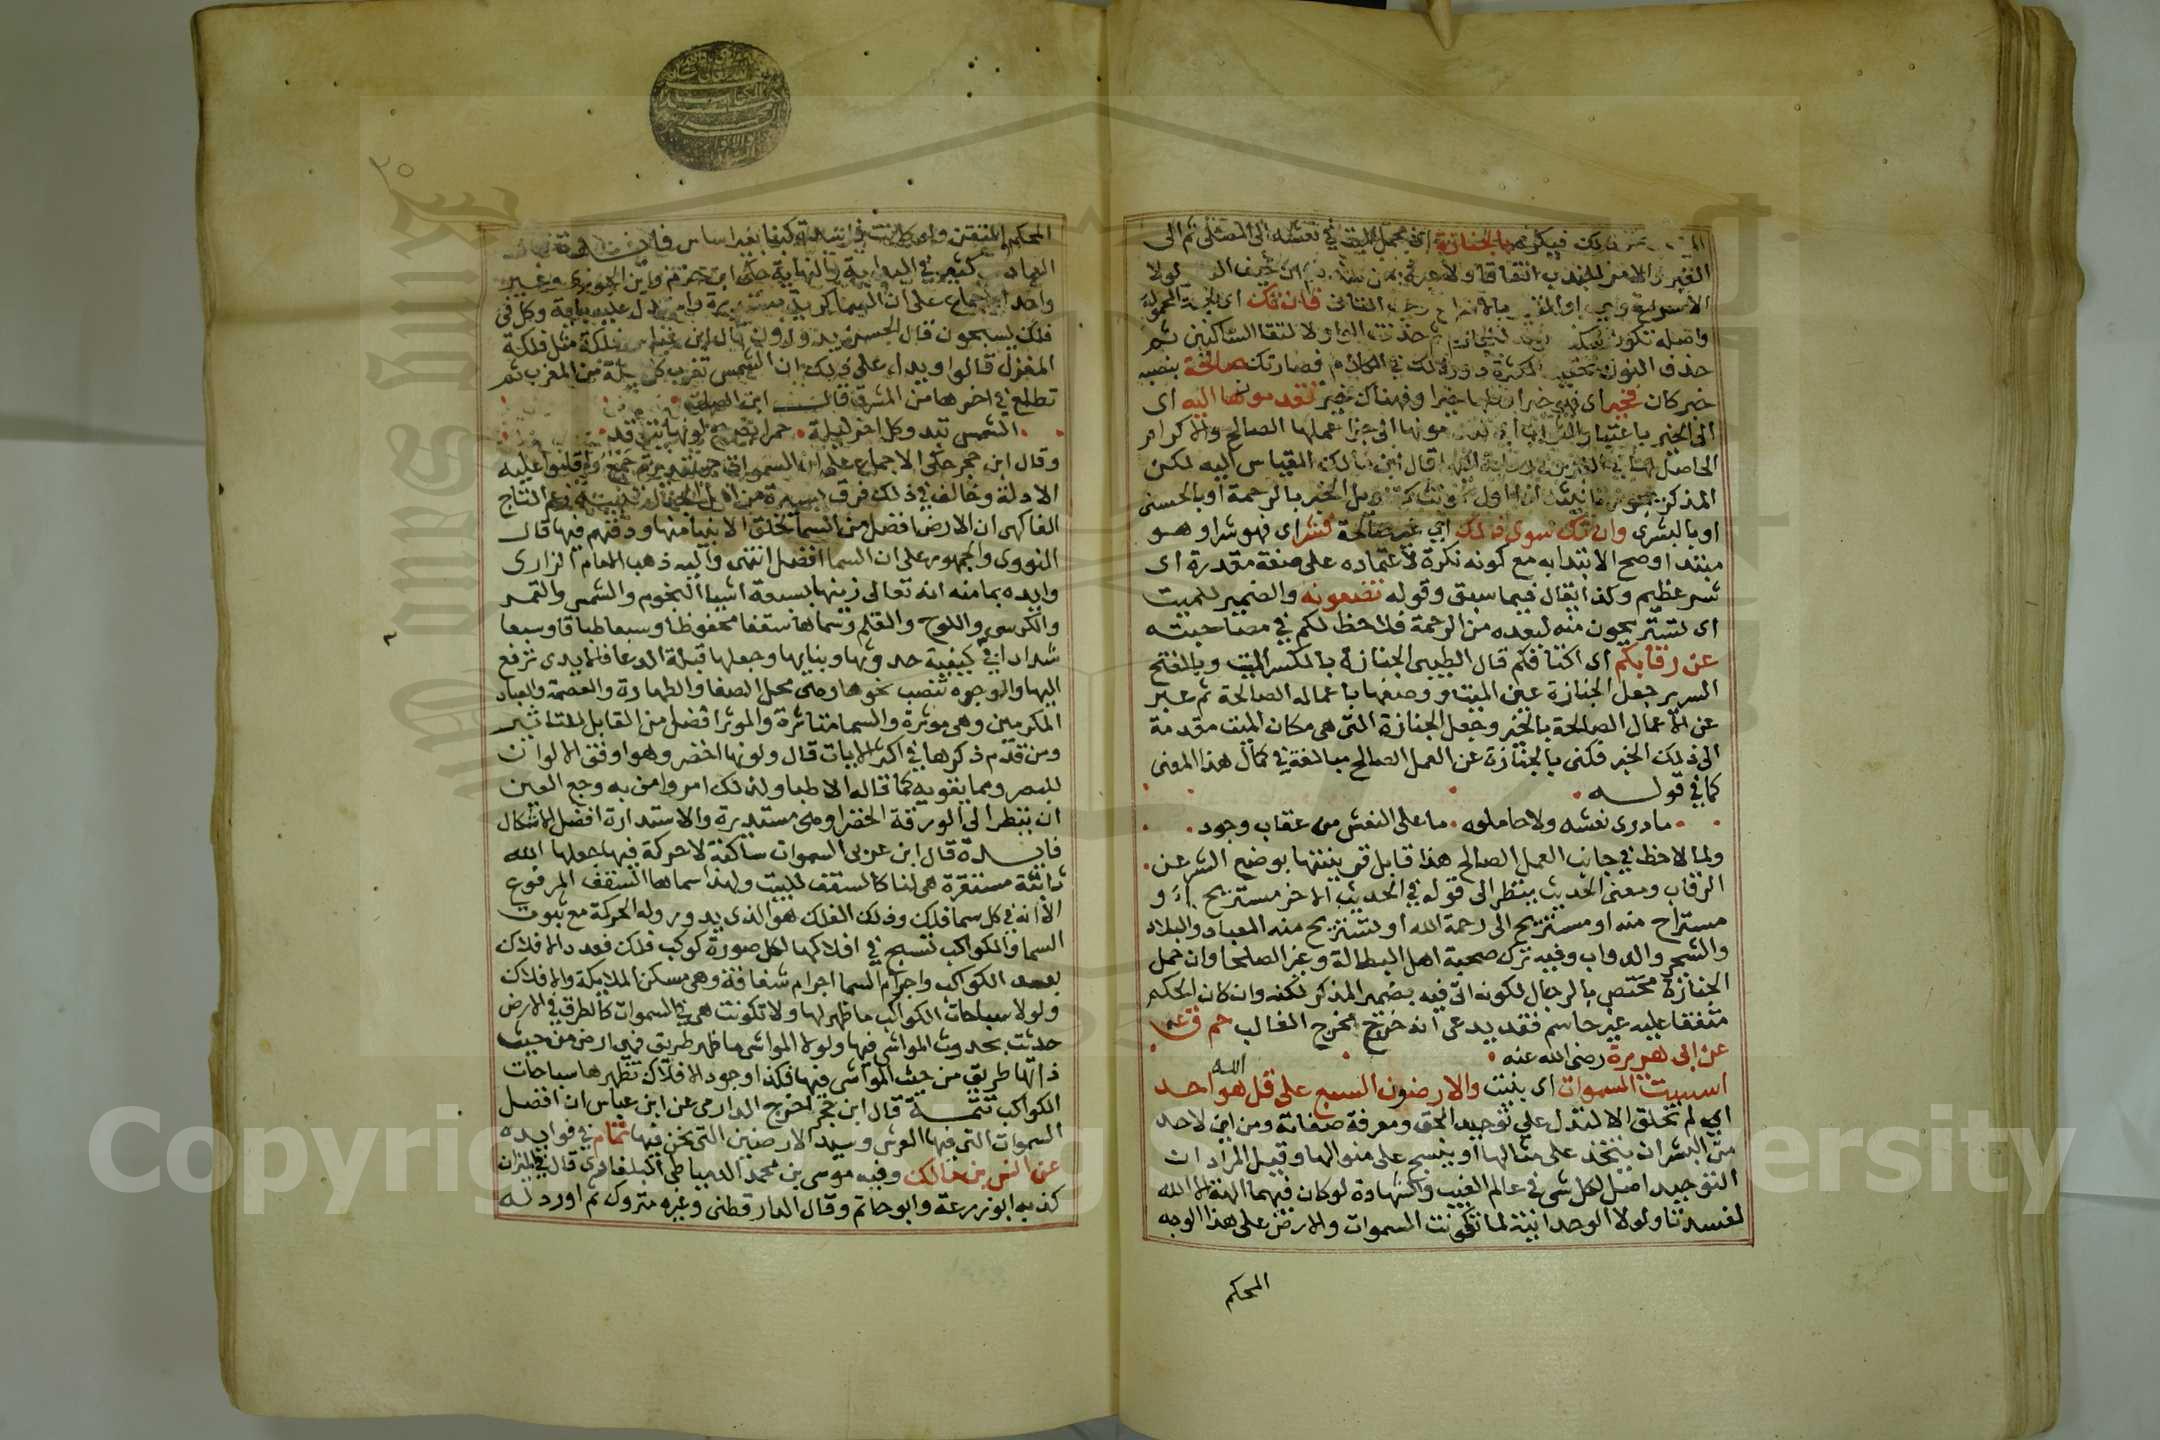 فيكره بالجنازة اي بحمل الميت في نعشه الى المصلى ثم الى
القبر والامر للندب اتفاقا ولا عبرة بمن شذ
فان تك اي الجثة المحمولة
واصله تكون حذفت الواو لالتقاء الساكنين ثم
حذف النون تخفيفا لكثرة دور ذلك في الكلام فصارتك صالحة بنصبه
خبر كان فخير اي فهي خير او فهناك خير تقدمونها اليه اى
الى الخير باعتبار الثواب عملها الصالح والاكرام
الحاصل لها قال ابن مالك القياس اليه لكن
المذكر يجوز تانيثه اذا اول بمونث كتاويل الخير بالرحمة او بالحسنى
او بالبشرى وان تك سوى ذلك اي غير صالحة فشر اى فهو شر او هو
مبتدا وصح الابتدا به مع كونه نكرة لاعتماده على صفة مقدرة اى
شر عظيم وكذا يقال فيما سبق وقوله تضعونه والضمير للميت
اى تستريحون منه لبعده من الرحمة فلا حظ لكم في مصاحبته
عن رقابكم اى اكتافكم قال الطيبى الجنازة بالكسر الميت وبالفتح
السرير جعل الجنازة عين الميت ووصفها باعماله الصالحة ثم عبر
عن الاعمال الصالحة بالخير وجعل الجنازة التى هى مكان الميت مقدمة
الى ذلك الخير فكنى بالجنازة عن العمل الصالح مبالغة في كمال هذا المعنى
كما في قوله
ما درى نعشه ولا حاملوه ما على النعش من عقاب وجود
ولما لاحظ في جانب العمل الصالح هذا قابل قرينتها بوضع الشر عن
الرقاب ومعنى الحديث ينظر الى قوله في الحديث الاخر مستريح او
مستراح منه او مستريح الى رحمة الله او تستريح منه العباد والبلاد
والشجر والدواب وفيه ترك صحبة اهل البطالة وغير الصلحا وان حمل
الجنازة مختص بالرجال لكونه اتى فيه بضمير المذكر لكنه وان كان الحكم
متفقا عليه غير حاسم فقد يدعى انه خرج مخرج الغالب حم ق عه
عن ابى هريرة رضى الله عنه
اسست السموات اى بنيت والارضون السبع على قل هو الله احد
اي لم تخلق الا لتدل على توحيد الحق ومعرفة صفاته ومن اين لاحد
من البشر ان يتخذ على مثالها او ينسج على منوالها وقيل المراد ان
التوحيد اصل لكل شى في عالم الغيب والشهادة لو كان فيهما الهة الا الله
لفسدتا ولولا الوحدانية لما تكونت السموات والارض على هذا الوجه
المحكم
المحكم المتقن
كثير في البداية والنهاية حكى ابن حزم وابن الجوزى وغير
واحد الاجماع على ان السما كرية مستديرة واستدل عليه باية وكل فى
فلك يسبحون قال الحسن يدورون قال ابن عباس فلكة مثل فلكة
المغزل قالوا ويدل على ذلك ان الشمس تغرب كل ليلة من المغرب ثم
تطلع في اخرها من المشرق قال ابن الصلت
الشمس تبدو كل اخر ليلة حمرا
وقال ابن حجر حكى الاجماع على ان السموات مستديرة جمع واقاموا عليه
الادلة وخالف في ذلك فرق يسيرة من اهل الجدل زعم التاج
الفاكهى ان الارض افضل من السما لخلق الانبيا منها ودفنهم فيها قال
النووى والجمهور على ان السما افضل انتهى واليه ذهب الامام الرازى
وايده بما منه انه تعالى زينها بسبعة اشيا النجوم والشمس والقمر
والكرسى واللوح والقلم وسماها سقفا محفوظا وسبعا طباقا وسبعا
شدادا في كيفية حدوثها وبنايها وجعلها قبلة الدعا فالايدى ترفع
اليها والوجوه تنصب نحوها وهى محل الصفا والطهارة والعصمة والعباد
المكرمين وهى موثرة والسما متاثرة والموثر افضل من القابل للتاثير
ومن تقدم ذكرها في اكثر الايات قال ولونها اخضر وهو اوفق الالوان
للبصر ومما يقويه كما قاله الاطبا ولذلك امروا من به وجع العين
ان ينظر الى الورقة الخضرا وهى مستديرة والاستدارة افضل الاشكال
فايدة قال ابن عربى السموات ساكنة لا حركة فيها جعلها الله
ثابتة مستقرة هى لنا كالسقف للبيت ولهذا سماها السقف المرفوع
الا انه في كل سما فلك وذلك الفلك هو الذى يدور وله الحركة مع ثبوت
السما والكواكب تسبح في افلاكها لكل صورة كوكب فلك فعدد الافلاك
بعدد الكواكب واجرام السما اجرام شفافة وهى مسكن الملايكة والافلاك
ولولا سباحات الكواكب ما ظهر لها ولا تكونت هى في السموات كالطرق في الارض
حدثت بحدوث المواشى فيها ولولا المواشى ما ظهر طريق فهى ارض من حيث
ذاتها طريق من حيث المواشى فيها فكذا وجود الافلاك تظهرها سباحات
الكواكب تتمة قال ابن حجر اخرج الدارمى عن ابن عباس ان افضل
السموات التى فيها العرش وسيد الارضين التى نحن فيها تمام في فوايده
عن انس بن مالك وفيه موسى بن محمد الدمياطى البلقاوى قال في الميزان
كذبه ابو زرعة وابو حاتم وقال الدارقطنى وغيره متروك ثم اورد له
Copyright © King Saud University